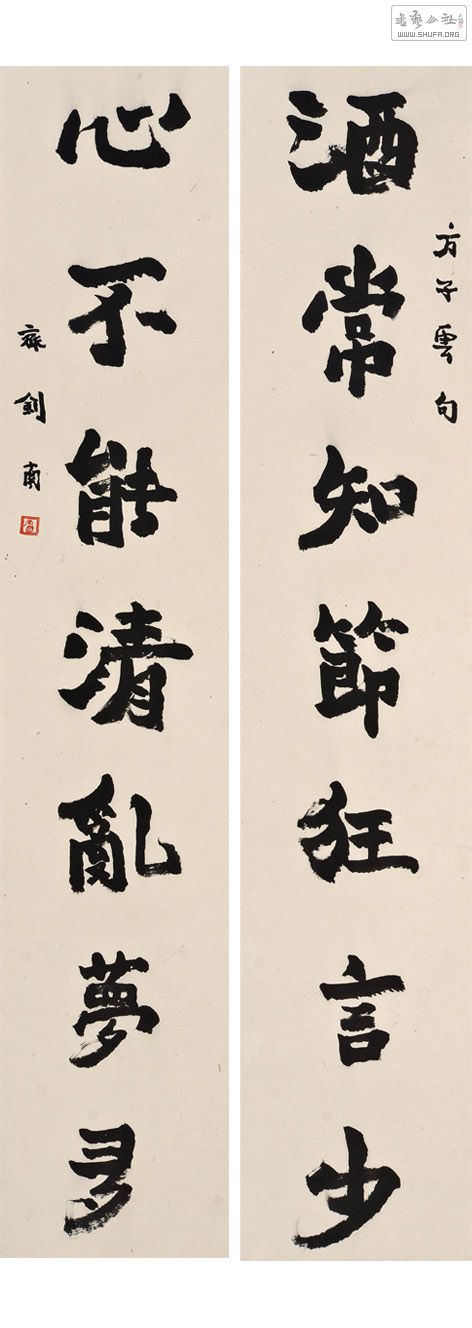 書藝公社
WWW.SHUFA.ORG
酒常知節狂言少
方子雲句
心不能清亂夢多
釗南